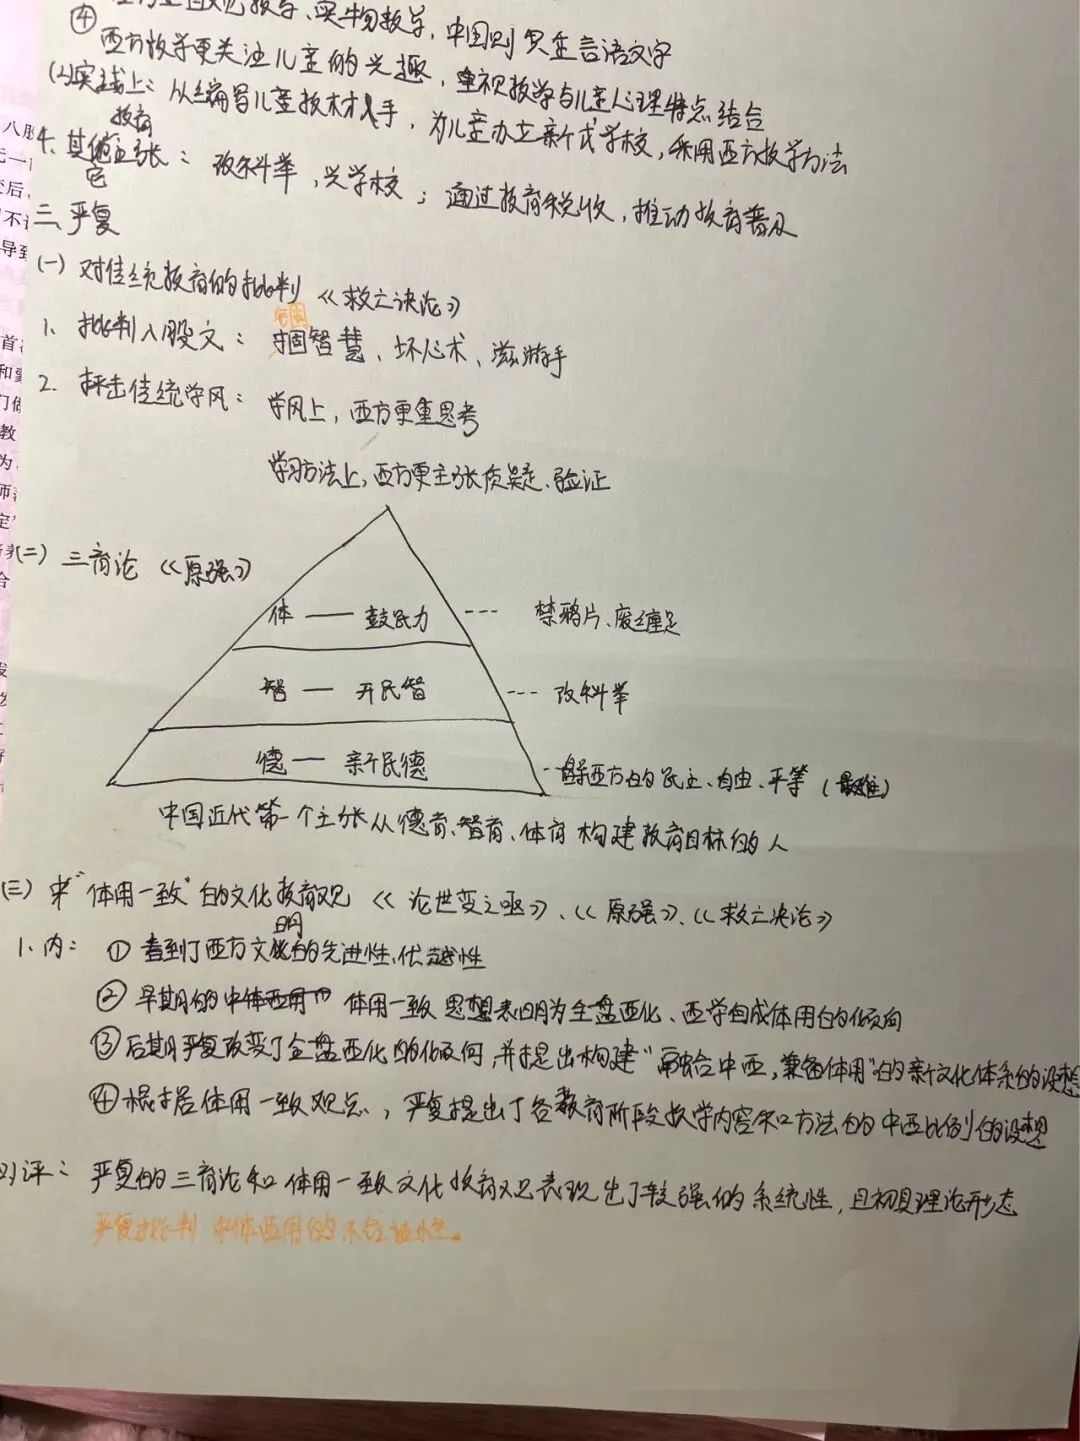 教学、实物教学，中国则只是言语文字
④西方教学更关注儿童的兴趣，重视教学与儿童心理特点结合
(2)实践上：从编写儿童教材入手，为儿童办立新式学校，采用西方教学方法
4、其他教育主张：改科举，兴学校；通过教育税收，推动教育普及
三、严复
(一)对传统教育的批判《救亡决论》
1、批判八股文：锢智慧、坏心术、滋游手
2、抨击传统学风：学风上，西方更重思考
学习方法上，西方更主张质疑、验证
(二)三育论《原强》
体——鼓民力 --- 禁鸦片、废缠足
智——开民智 --- 改科举
德——新民德 -- 西方的民主、自由、平等（最难）
中国近代第一个主张从德育、智育、体育构建教育目标的人
(三)"体用一致"的文化教育观《论世变之亟》、《原强》、《救亡决论》
1、内：①看到了西方文明的先进性、优越性
②早期的体用一致思想表明为全盘西化、西学自成体用的倾向
③后期严复改变了全盘西化的倾向，并提出构建"融合中西，兼备体用"的新文化体系的设想
④根据体用一致观点，严复提出了各教育阶段教学内容和方法的中西比例的设想
评：严复的三育论和体用一致文化教育观表现出了较强的系统性，且初具理论形态
严复批判中体西用的不合理性。